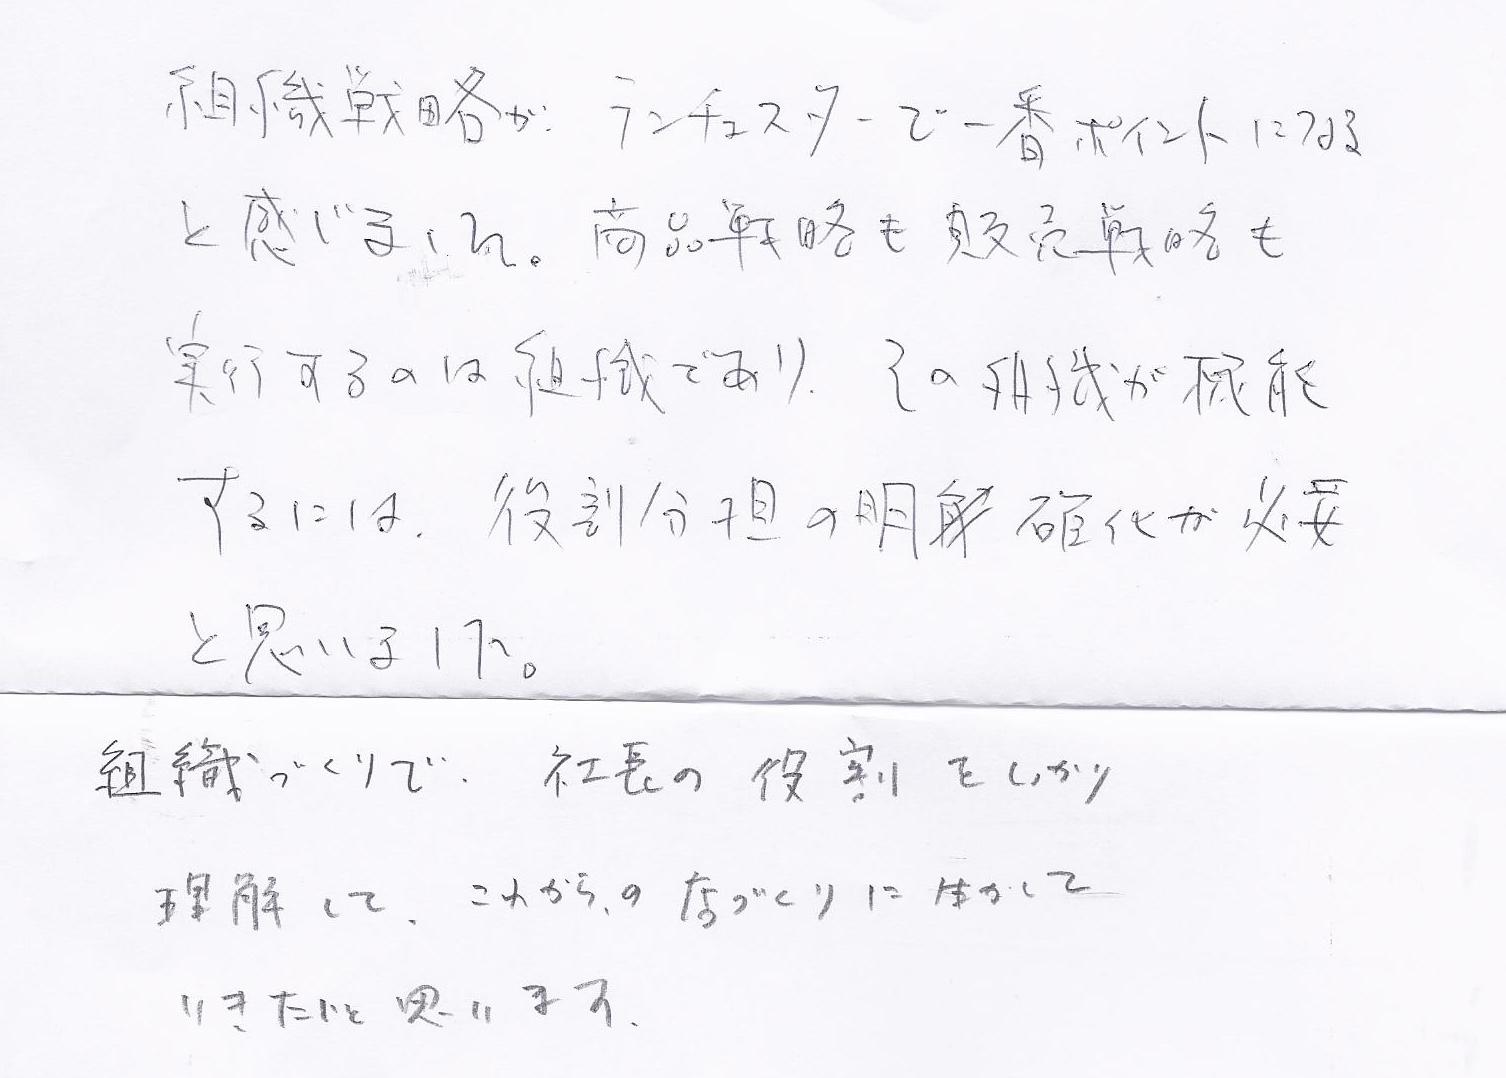 組織戦略が、ランチェスターで一番ポイントになる
と感じました。商品戦略も販売戦略も
実行するのは組織であり、その組織が機能
するには、役割分担の明確化が必要
と思いました。
組織づくりで、社長の役割をしっかり
理解して、これからの店づくりに生かして
いきたいと思います。